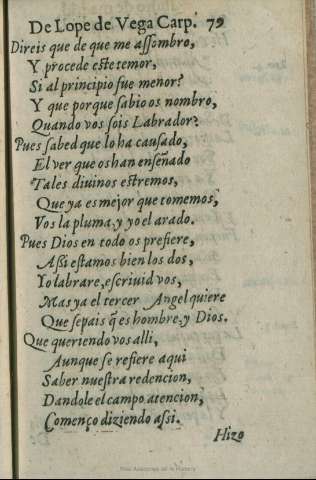 De Lope de Vega Carp. 79
Direis que de que me assombro,
Y procede este temor,
Si al principio fue menor?
Y que porque sabio os nombro,
Quando vos sois Labrador?
Pues sabed que lo ha causado,
El ver que os han enseñado
Tales diuinos estremos,
Que ya es mejor que tomemos,
Vos la pluma, y yo el arado.
Pues Dios en todo os prefiere,
Assi estamos bien los dos,
Yo labrare, escriuid vos,
Mas ya el tercer Angel quiere
Que sepais q̃ es hombre, y Dios.
Que queriendo vos alli,
Aunque se refiere aqui
Saber nuestra redencion,
Dandole el campo atencion,
Començo diziendo assi.
Hizo
Real Academia de la Historia